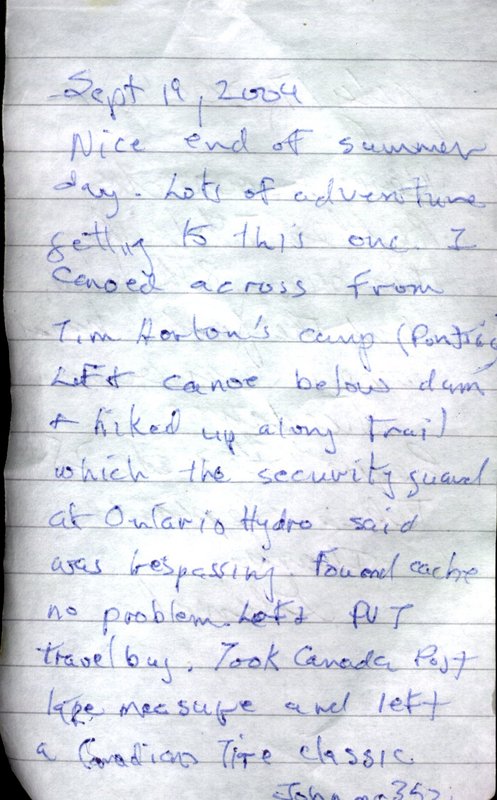 Sept 19, 2004
Nice end of summer
day. Lots of adventure
getting to this one. I
Canoed across from
Tim Horton's camp (Pontiac)
Left canoe below dam
+ hiked up along trail
which the security guard
at Ontario Hydro said
was trespassing. Found cache
no problem. Left PVT
travel bug. Took Canada Post
tape measure and left
a Canadian Tire classic.